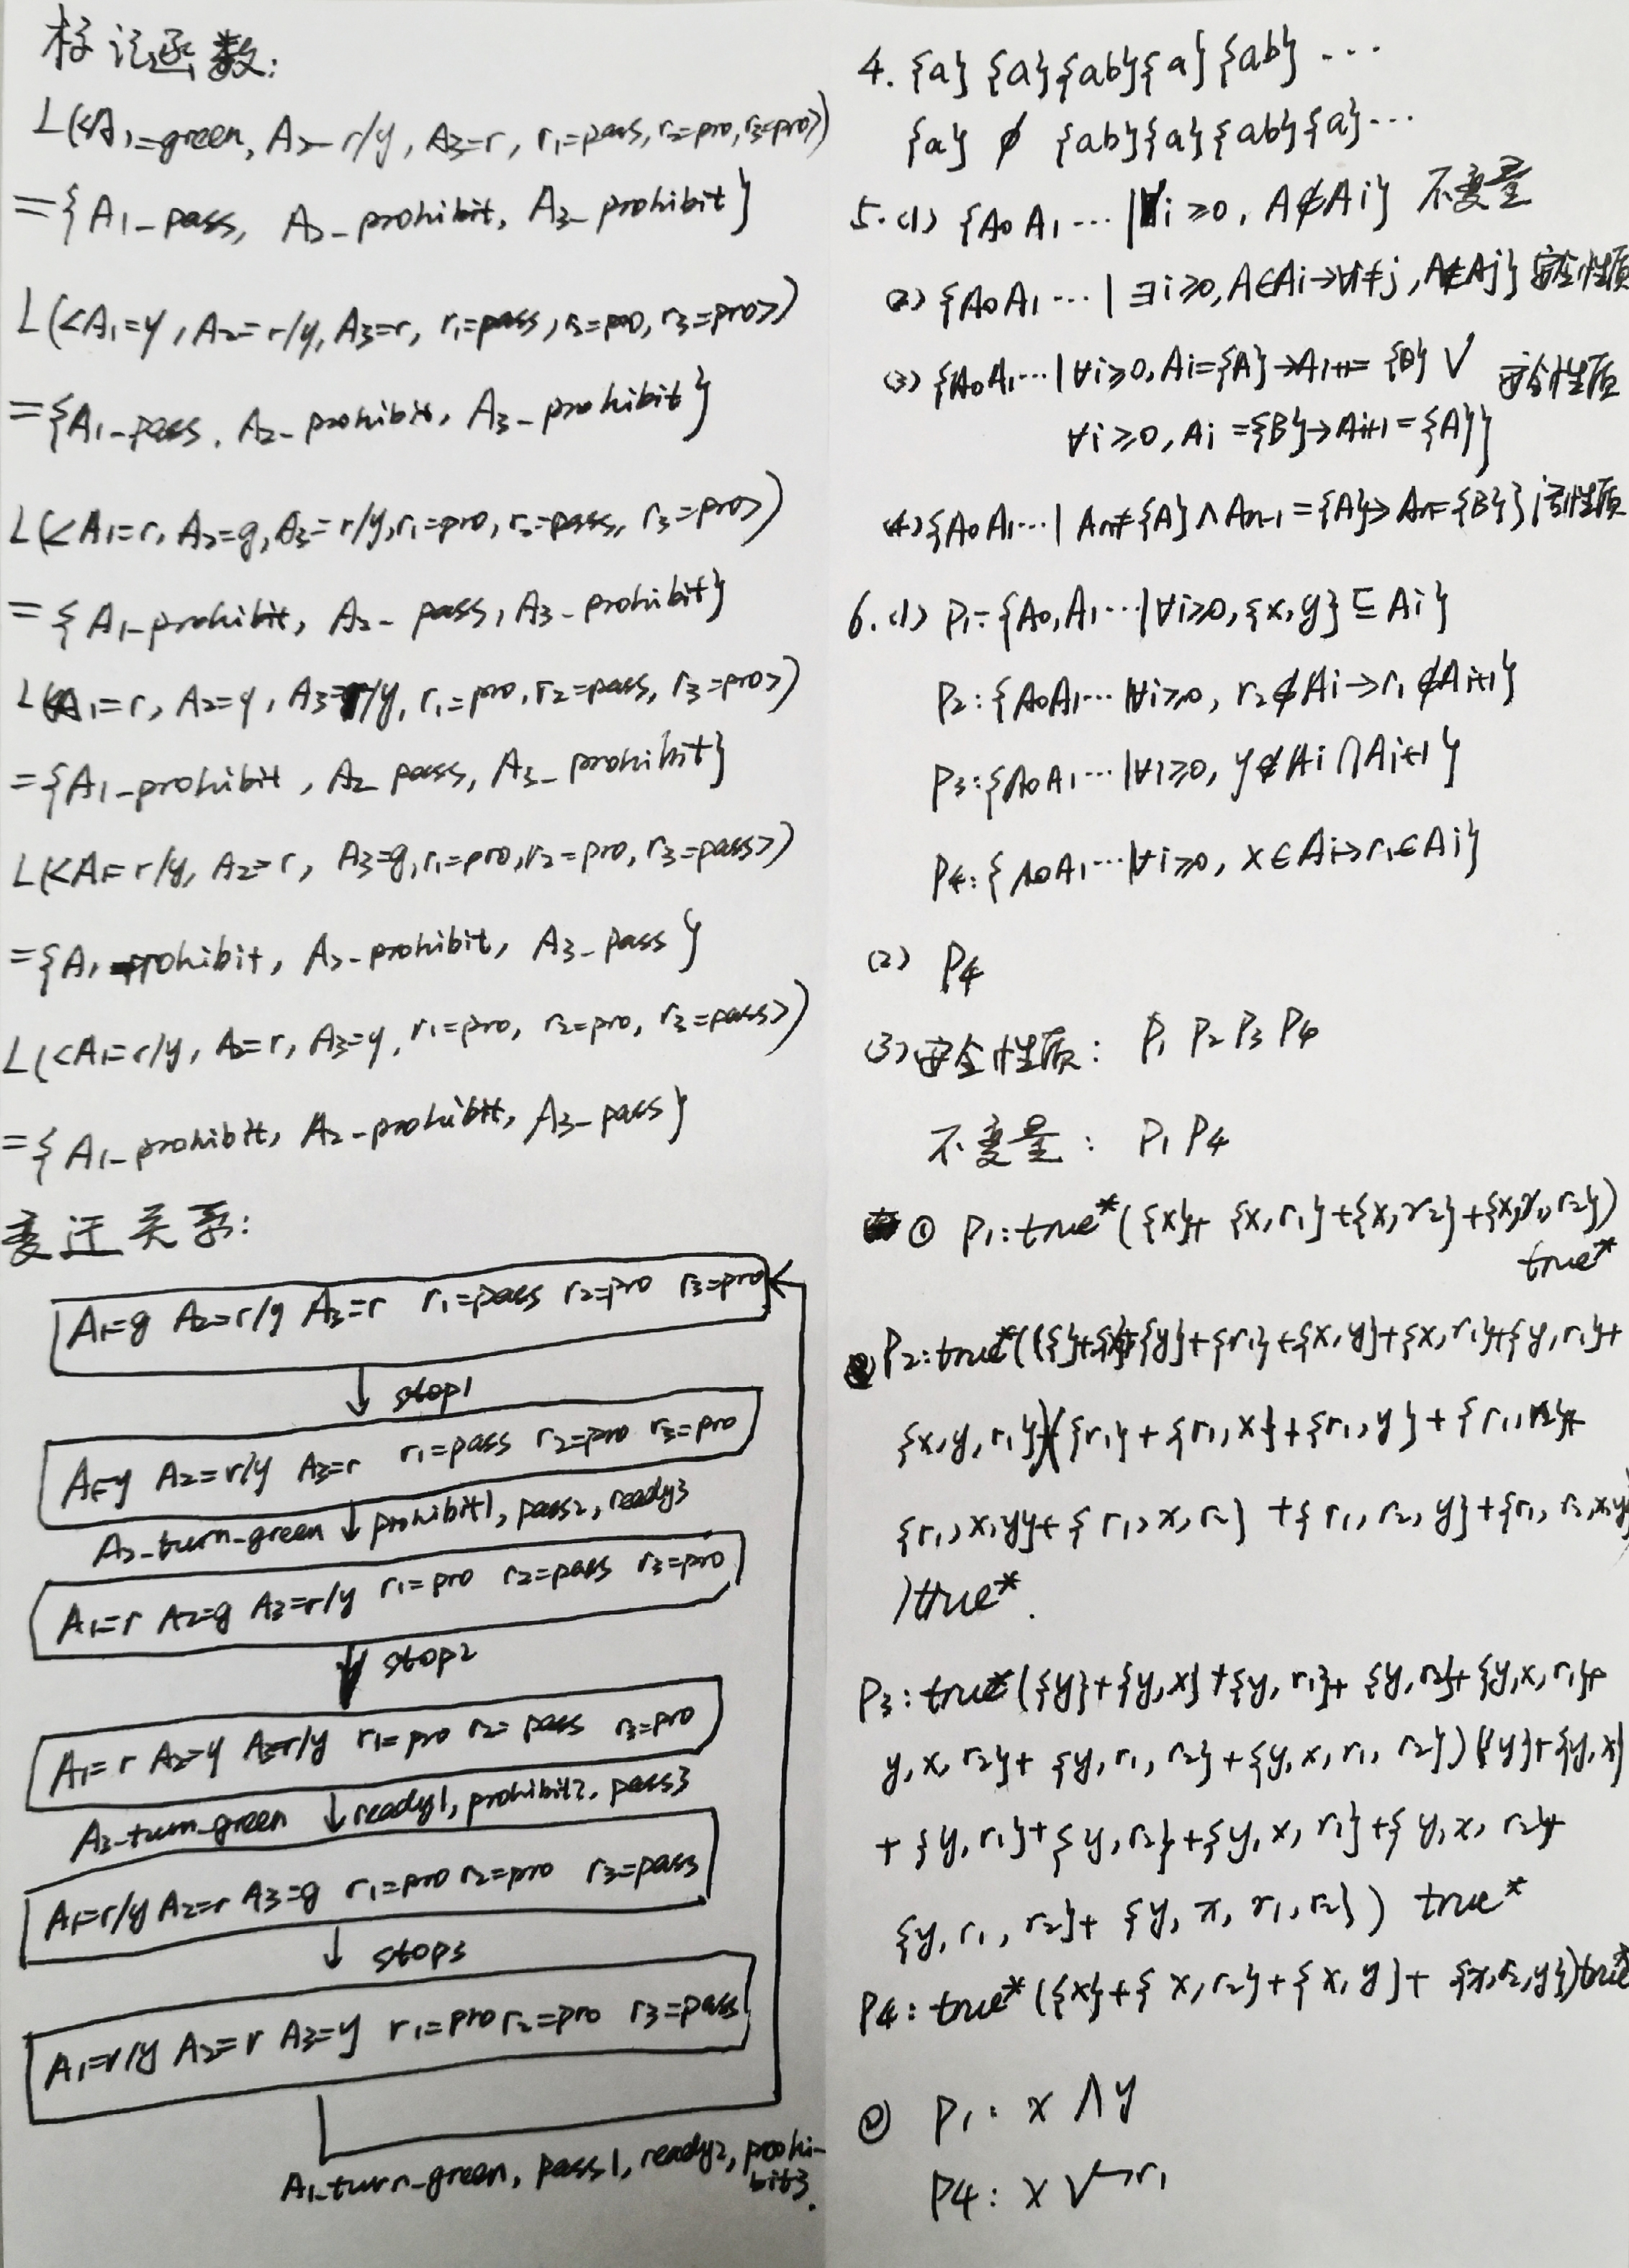 标记函数:
L(<A1=green, A2=r/y, A3=r, r1=pass, r2=pro, r3=pro>)
={A1_pass, A2_prohibit, A3_prohibit}
L(<A1=y, A2=r/y, A3=r, r1=pass, r2=pro, r3=pro>)
={A1_pass, A2_prohibit, A3_prohibit}
L(<A1=r, A2=g, A3=r/y, r1=pro, r2=pass, r3=pro>)
={A1_prohibit, A2_pass, A3_prohibit}
L(<A1=r, A2=y, A3=r/y, r1=pro, r2=pass, r3=pro>)
={A1_prohibit, A2_pass, A3_prohibit}
L(<A1=r/y, A2=r, A3=g, r1=pro, r2=pro, r3=pass>)
={A1_prohibit, A2_prohibit, A3_pass}
L(<A1=r/y, A2=r, A3=y, r1=pro, r2=pro, r3=pass>)
={A1_prohibit, A2_prohibit, A3_pass}
变迁关系:
A1=g A2=r/y A3=r r1=pass r2=pro r3=pro
↓ stop1
A1=y A2=r/y A3=r r1=pass r2=pro r3=pro
A2_turn_green ↓ prohibit1, pass2, ready3
A1=r A2=g A3=r/y r1=pro r2=pass r3=pro
↓ stop2
A1=r A2=y A3=r/y r1=pro r2=pass r3=pro
A3_turn_green ↓ ready1, prohibit2, pass3
A1=r/y A2=r A3=g r1=pro r2=pro r3=pass
↓ stop3
A1=r/y A2=r A3=y r1=pro r2=pro r3=pass
A1_turn_green, pass1, ready2, prohi-
bit3.
4. {a} {a} {ab} {a} {ab} ...
{a} ∅ {ab} {a} {ab} {a} ...
5. (1) {A0 A1 ... | ∀i≥0, A∉Ai} 不变量
(2) {A0 A1 ... | ∃i≥0, A∈Ai→∀i≠j, A∉Aj} 安全性质
(3) {A0 A1 ... | ∀i≥0, Ai={A}→Ai+1={B} ∨ 安全性质
∀i≥0, Ai={B}→Ai+1={A}}
(4) {A0 A1 ... | An≠{A}∧An-1={A}→An={B}} 活性质
6. (1) P1={A0, A1 ... | ∀i≥0, {x, y}⊆Ai}
P2: {A0 A1 ... | ∀i≥0, r2∉Ai→r1∉Ai+1}
P3: {A0 A1 ... | ∀i≥0, y∉Ai∩Ai+1}
P4: {A0 A1 ... | ∀i≥0, x∈Ai→r1∈Ai}
(2) P4
(3) 安全性质: P1 P2 P3 P4
不变量: P1 P4
① P1: true*({x}+{x, r1}+{x, r2}+{x, r1, r2})
true*
P2: true*(({}+{x}+{y}+{r1}+{x, y}+{x, r1}+{y, r1}+
{x, y, r1})({r1}+{r1, x}+{r1, y}+{r1, r2}+
{r1, x, y}+{r1, x, r2}+{r1, r2, y}+{r1, r2, x, y}
)true*.
P3: true*({y}+{y, x}+{y, r1}+{y, r2}+{y, x, r1}+
y, x, r2}+{y, r1, r2}+{y, x, r1, r2})({y}+{y, x}
+{y, r1}+{y, r2}+{y, x, r1}+{y, x, r2}+
{y, r1, r2}+{y, x, r1, r2}) true*
P4: true*({x}+{x, r2}+{x, y}+{x, r2, y})true*
② P1: x∧y
P4: x∨¬r1